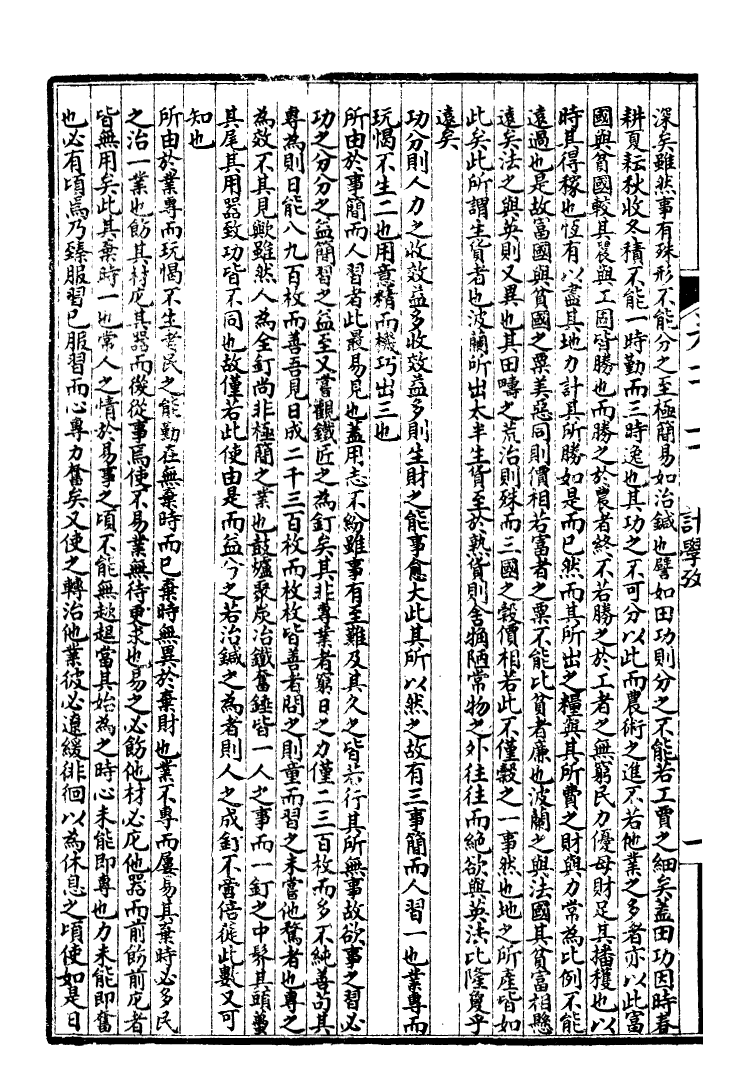 深矣雖然事有殊形不能分之至極簡易如治鍼也譬如田功則分之不能若工賈之細矣蓋田功因時春
耕夏耘秋收冬積不能一時勤而三時逸也其功之不可分以此而農術之進不若他業之多者亦以此富
國與貧國較其農與工固皆勝也而勝之於農者終不若勝之於工者之無窮民力優母財足其播穫也以
時其得稼也恆有以盡其地力計其所勝如是而已然而其所出之糧與其所費之財與力常為比例不能
遠過也是故富國與貧國之粟美惡同則價相若富者之粟不能比貧者廉也波蘭之與法國其貧富相懸
遠矣法之與英則又異也其田疇之荒治則殊而三國之穀價相若此不僅穀之一事然也地之所產皆如
此矣此所謂生貨者也波蘭所出大半生貨至於熟貨則舍觕陋常物之外往往而絕欲與英法比隆敻乎
遠矣
功分則人力之收效益多收效益多則生財之能事愈大此其所以然之故有三事簡而人習一也業專而
玩愒不生二也用意精而機巧出三也
所由於事簡而人習者此最易見也蓋用志不紛雖事有至難及其久之皆若行其所無事故欲事之習必
功之分分之益簡習之益至又嘗觀鐵匠之為釘矣其非專業者窮日之力僅二三百枚而多不純善苟其
專為則日能八九百枚而善吾見日成二千三百枚而枚枚皆善者問之則童而習之未嘗他騖者也專之
為效不其見歟雖然人為全釘尚非極簡之業也鼓爐聚炭冶鐵奮錘皆一人之事而一釘之中髹其頭蠆
其尾其用器致功皆不同也故僅若此使由是而益分之若治鍼之為者則人之成釘不啻倍蓰此數又可
知也
所由於業專而玩愒不生者民之能勤在無棄時而已棄時無異於棄財也業不專而屢易其棄時必多民
之治一業也飭其材庀其器而後從事焉使不易業無待更求也易之必飭他材必庀他器而前飭前庀者
皆無用矣此其棄時一也常人之情於易事之頃不能無趑趄當其始為之時心未能即專也力未能即奮
也必有頃焉乃臻服習已服習而心專力奮矣又使之轉治他業彼必遼緩徘徊以為休息之頃使如是日
計學攷
一